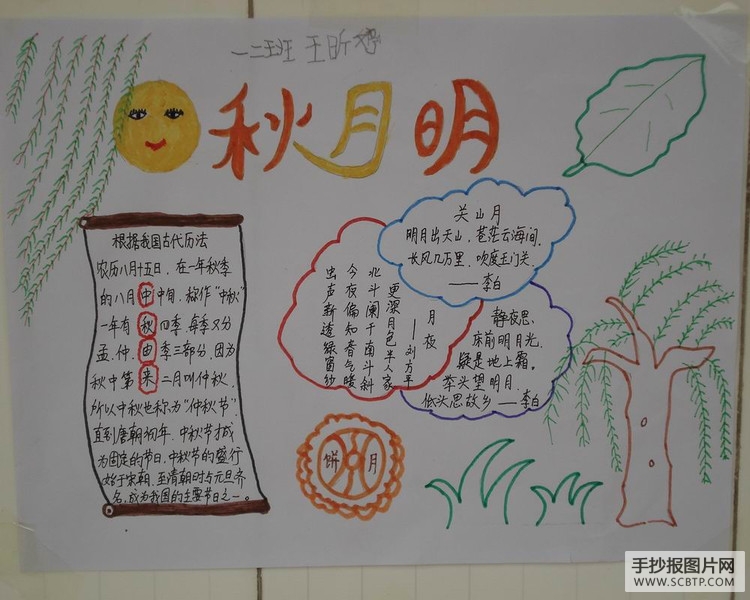 一二班 王昕
秋月明
根据我国古代历法
农历八月十五日，在一年秋季
的八月中中旬，故作“中秋”
一年有秋四季，每季又分
孟、仲、由季三部分，因为
秋中第来二月叫仲秋，
所以中秋也称为“仲秋节”
直到唐朝初年，中秋节才成
为固定的节日，中秋节的盛行
始于宋朝，至清朝时与元旦齐
名，成为我国的主要节日之一。
关山月
明月出天山，苍茫云海间，
长风几万里，吹度玉门关。
——李白
月夜
——刘方平
更深月色半人家
北斗阑干南斗斜
今夜偏知春气暖
虫声新透绿窗纱
静夜思，
床前明月光，
疑是地上霜。
举头望明月，
低头思故乡——李白
饼 月
手抄报图片网
WWW.SCBTP.COM